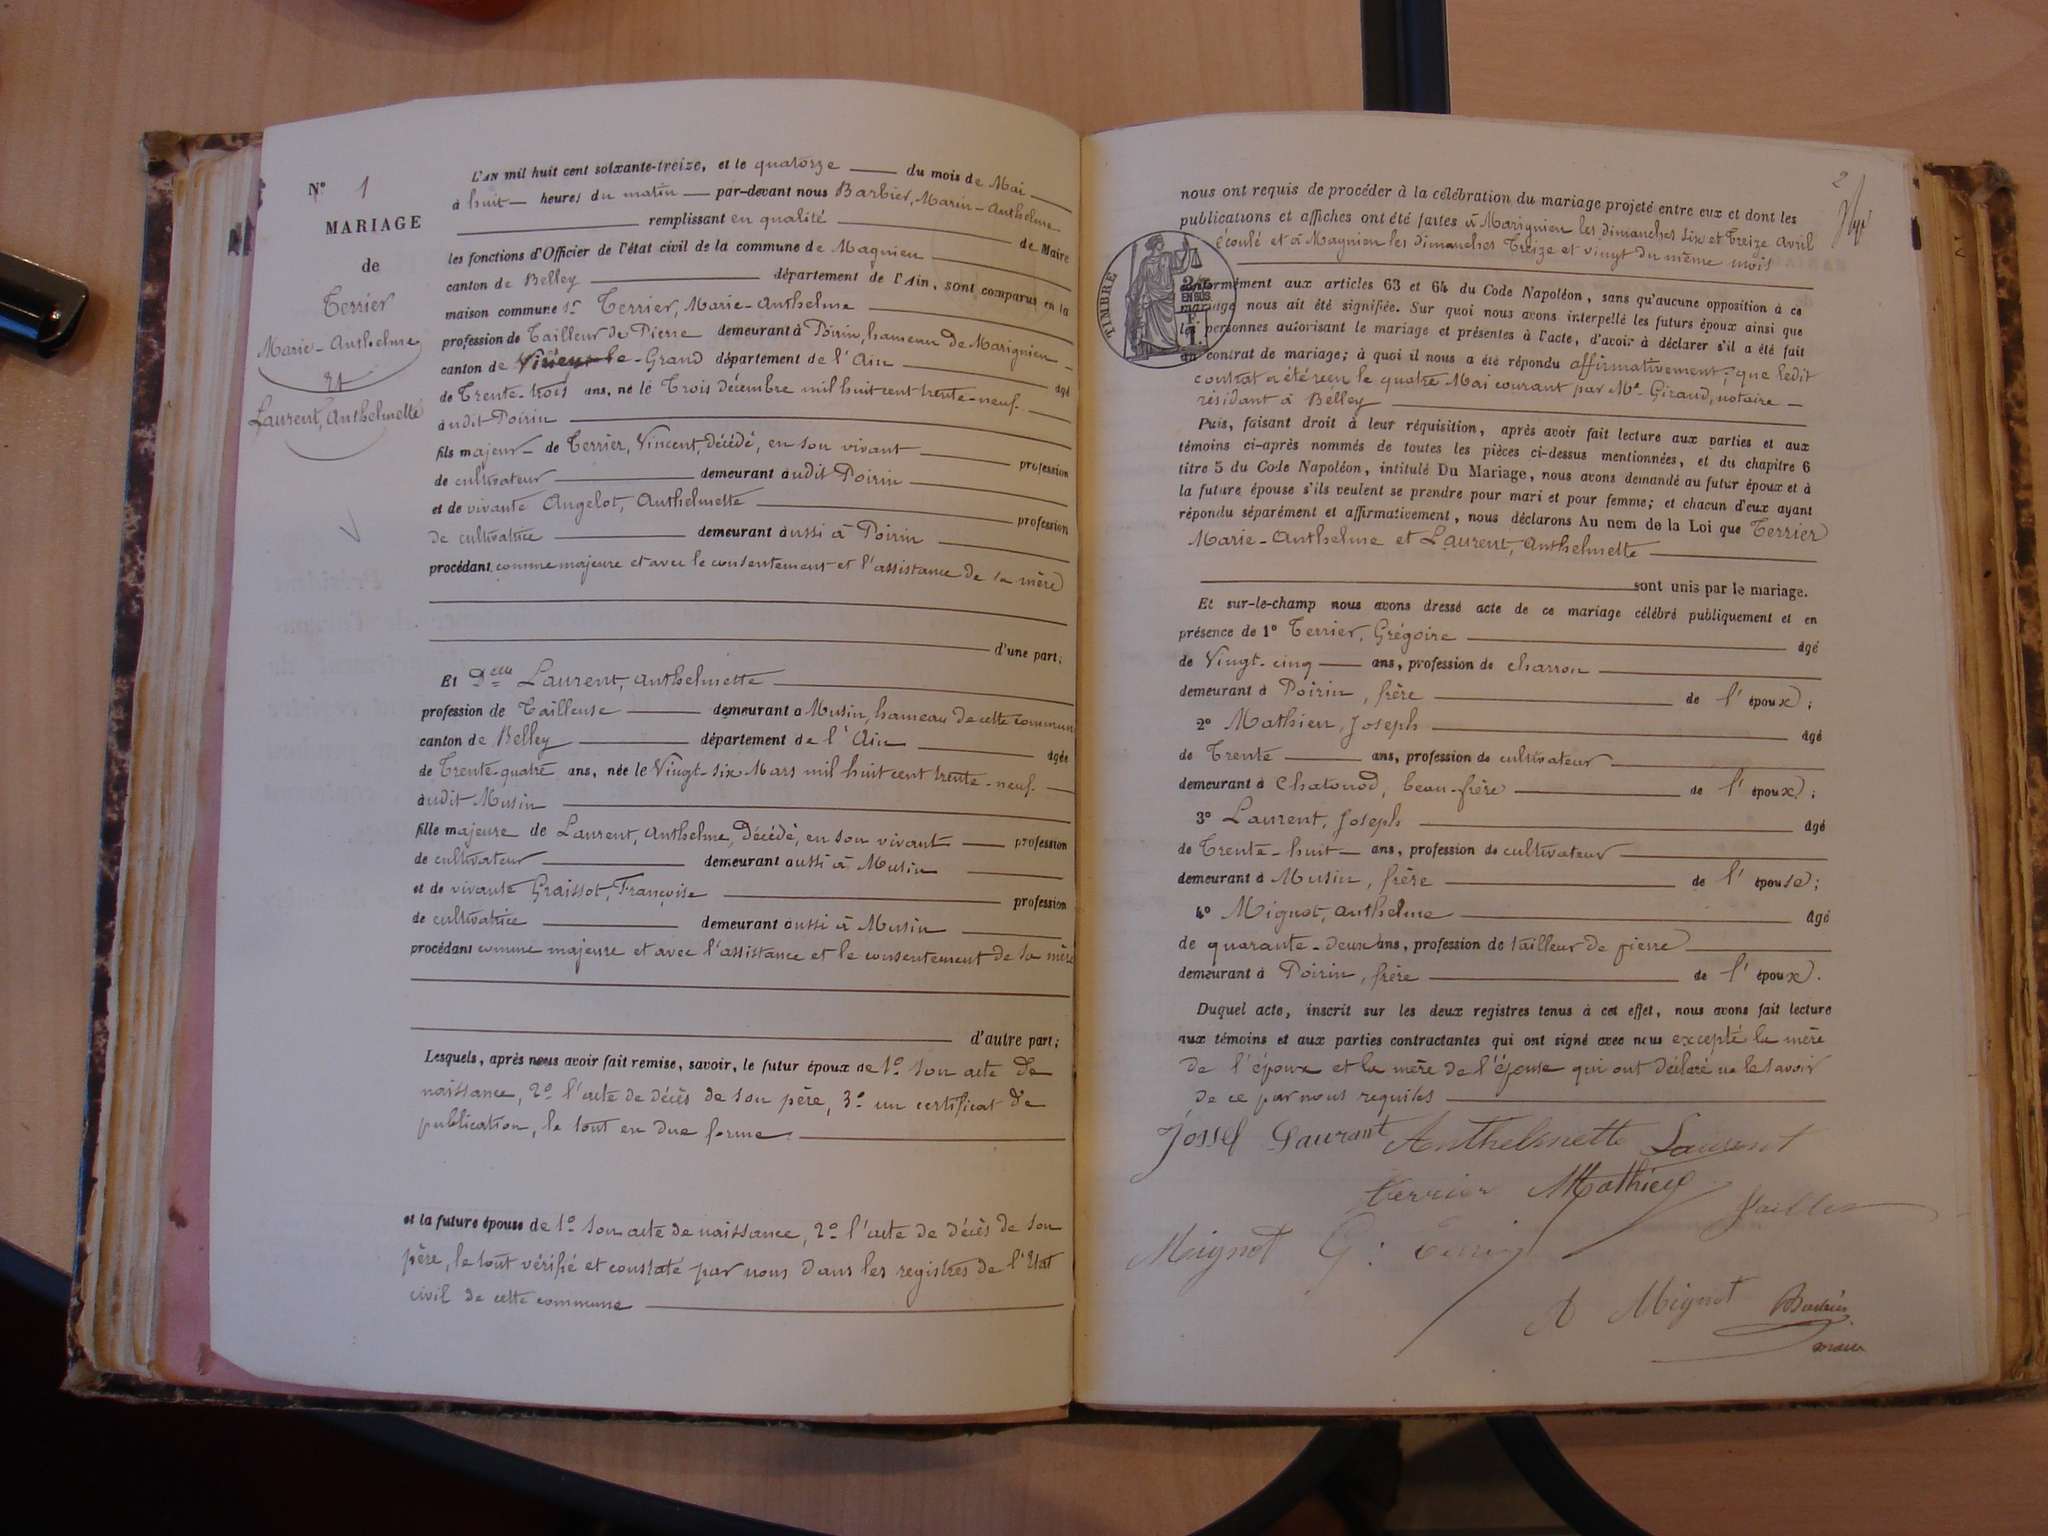 N° 1
MARIAGE
de
Terrier
Marie-Anthelme
et
Laurent, Anthelmette
L'AN mil huit cent soixante-treize, et le quatorze du mois de Mai
à huit heures du matin par-devant nous Barbier, Marin-Anthelme
remplissant en qualité de Maire
les fonctions d'Officier de l'état civil de la commune de Magnieu
canton de Belley département de l'Ain, sont comparus en la
maison commune 1° Terrier, Marie-Anthelme
profession de Tailleur de Pierre demeurant à Poirin, hameau de Marignieu
canton de Virieu-le-Grand département de l'Ain âgé
de Trente-trois ans, né le Trois décembre mil huit cent trente-neuf
audit Poirin
fils majeur de Terrier, Vincent, décédé, en son vivant profession
de cultivateur demeurant audit Poirin
et de vivante Angelot, Anthelmette profession
de cultivatrice demeurant aussi à Poirin
procédant comme majeure et avec le consentement et l'assistance de sa mère
d'une part;
Et Delle Laurent, Anthelmette
profession de Tailleuse demeurant à Musin, hameau de cette commune
canton de Belley département de l'Ain âgée
de Trente-quatre ans, née le Vingt-six Mars mil huit cent trente-neuf
audit Musin
fille majeure de Laurent, Anthelme, décédé, en son vivant profession
de cultivateur demeurant aussi à Musin
et de vivante Graissot, Françoise profession
de cultivatrice demeurant aussi à Musin
procédant comme majeure et avec l'assistance et le consentement de sa mère
d'autre part;
Lesquels, après nous avoir fait remise, savoir, le futur époux de 1° son acte de
naissance, 2° l'acte de décès de son père, 3° un certificat de
publication, le tout en due forme
et la future épouse de 1° son acte de naissance, 2° l'acte de décès de son
père, le tout vérifié et constaté par nous dans les registres de l'Etat
civil de cette commune
2
nous ont requis de procéder à la célébration du mariage projeté entre eux et dont les
publications et affiches ont été faites à Marignieu les dimanches six et treize avril
écoulé et à Magnieu les dimanches treize et vingt du même mois
TIMBRE
2/10
EN SUS
conformément aux articles 63 et 64 du Code Napoléon, sans qu'aucune opposition à ce
mariage nous ait été signifiée. Sur quoi nous avons interpellé les futurs époux ainsi que
les personnes autorisant le mariage et présentes à l'acte, d'avoir à déclarer s'il a été fait
un contrat de mariage; à quoi il nous a été répondu affirmativement; que ledit
contrat a été reçu le quatre Mai courant par Me Giraud, notaire
résidant à Belley
Puis, faisant droit à leur réquisition, après avoir fait lecture aux parties et aux
témoins ci-après nommés de toutes les pièces ci-dessus mentionnées, et du chapitre 6
titre 5 du Code Napoléon, intitulé Du Mariage, nous avons demandé au futur époux et à
la future épouse s'ils veulent se prendre pour mari et pour femme; et chacun d'eux ayant
répondu séparément et affirmativement, nous déclarons Au nom de la Loi que Terrier
Marie-Anthelme et Laurent, Anthelmette
sont unis par le mariage.
Et sur-le-champ nous avons dressé acte de ce mariage célébré publiquement et en
présence de 1° Terrier, Grégoire âgé
de Vingt-cinq ans, profession de charron
demeurant à Poirin, frère de l'époux;
2° Mathieu, Joseph âgé
de Trente ans, profession de cultivateur
demeurant à Chatonod, beau-frère de l'époux;
3° Laurent, Joseph âgé
de Trente-huit ans, profession de cultivateur
demeurant à Musin, frère de l'épouse;
4° Mignot, Anthelme âgé
de quarante-deux ans, profession de tailleur de pierre
demeurant à Poirin, frère de l'époux.
Duquel acte, inscrit sur les deux registres tenus à cet effet, nous avons fait lecture
aux témoins et aux parties contractantes qui ont signé avec nous excepté la mère
de l'époux et la mère de l'épouse qui ont déclaré ne le savoir
de ce par nous requises
Jossef Laurant Anthelmette Laurent
Terrier Mathieu
Mignot G. Terrier
A Mignot Barbier
maire